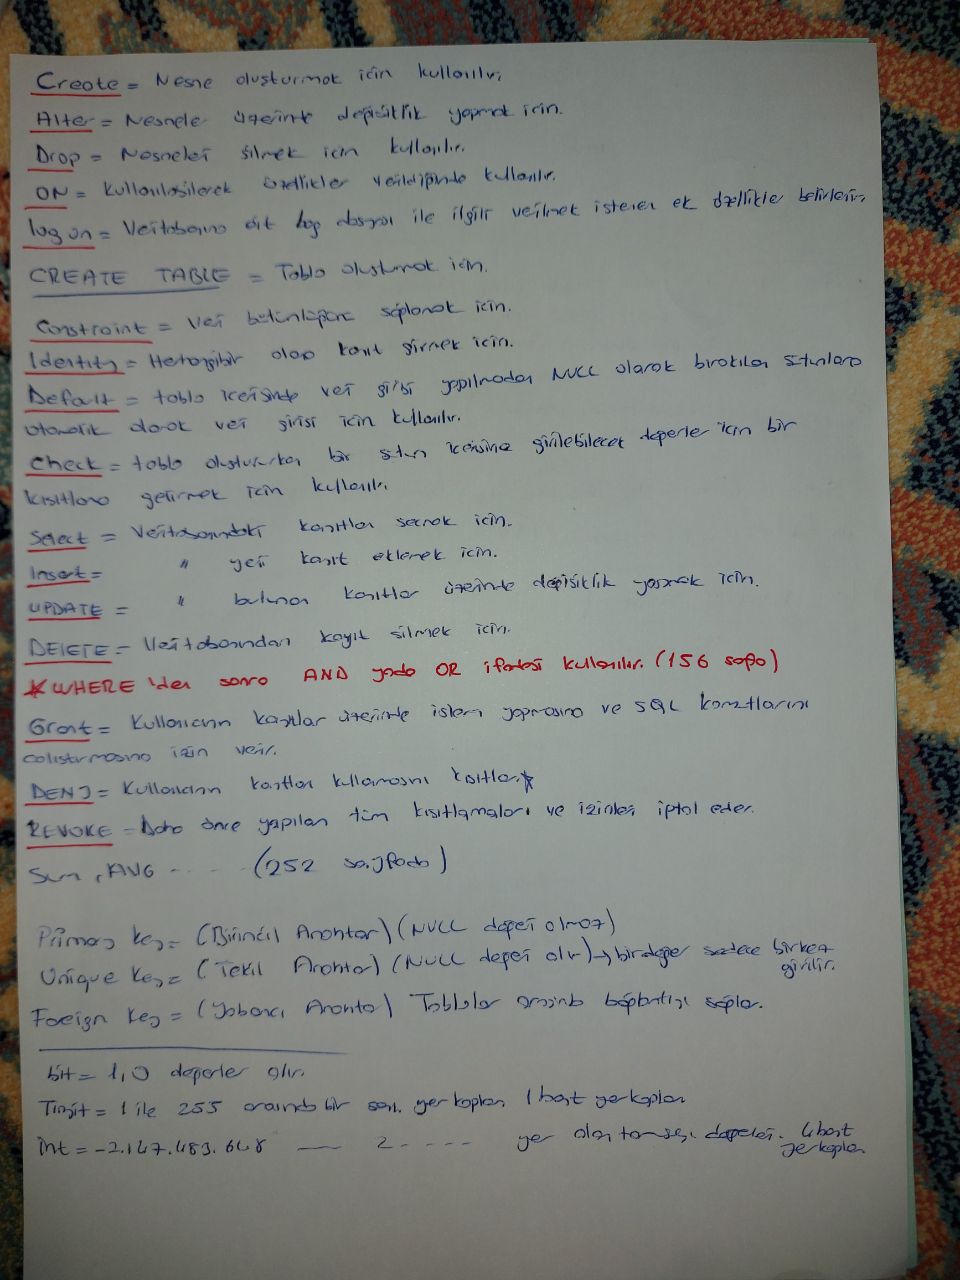 Create = Nesne oluşturmak için kullanılır.
Alter = Nesneler üzerinde değişiklik yapmak için.
Drop = Nesneleri silmek için kullanılır.
ON = Kullanılabilerek özellikler verildiğinde kullanılır.
log on = Veritabanına ait log dosyası ile ilgili verilmek istenen ek özellikler belirlenir.
CREATE TABLE = Tablo oluşturmak için.
Constraint = Veri bütünlüğünü sağlamak için.
Identity = Herhangibir olarak kayıt girmek için.
Default = tablo içerisinde veri girişi yapılmadan NULL olarak bırakılan sütunlara
otomatik olarak veri girişi için kullanılır.
Check = tablo oluştururken bir sütun içerisine girilebilecek değerler için bir
kısıtlama getirmek için kullanılır.
Select = Veritabanındaki kayıtları seçmek için.
Insert = " yeni kayıt eklemek için.
UPDATE = " bulunan kayıtlar üzerinde değişiklik yapmak için.
DELETE = Veritabanından kayıt silmek için.
* WHERE 'den sonra AND yada OR ifadesi kullanılır. (156 sayfa)
Grant = Kullanıcının kayıtlar üzerinde işlem yapmasına ve SQL komutlarını
çalıştırmasına izin verir.
DENY = Kullanıcının kayıtları kullanmasını kısıtlar. *
REVOKE = Daha önce yapılan tüm kısıtlamaları ve izinleri iptal eder.
Sum, AVG ----- (252 sayfada)
Primary key = (Birincil Anahtar) (NULL değeri olmaz)
Unique key = (Tekil Anahtar) (NULL değeri olur) → bir değer sadece birkez
girilir.
Foreign key = (Yabancı Anahtar) Tablolar arasında bağlantıyı sağlar.
bit = 1,0 değerler alır.
Tinyint = 1 ile 255 arasında bir sayı. yer kaplar 1 bayt yer kaplar
int = -2.147.483.648 — 2 ---- yer alan tamsayı değerleri. 4 bayt
yer kaplar